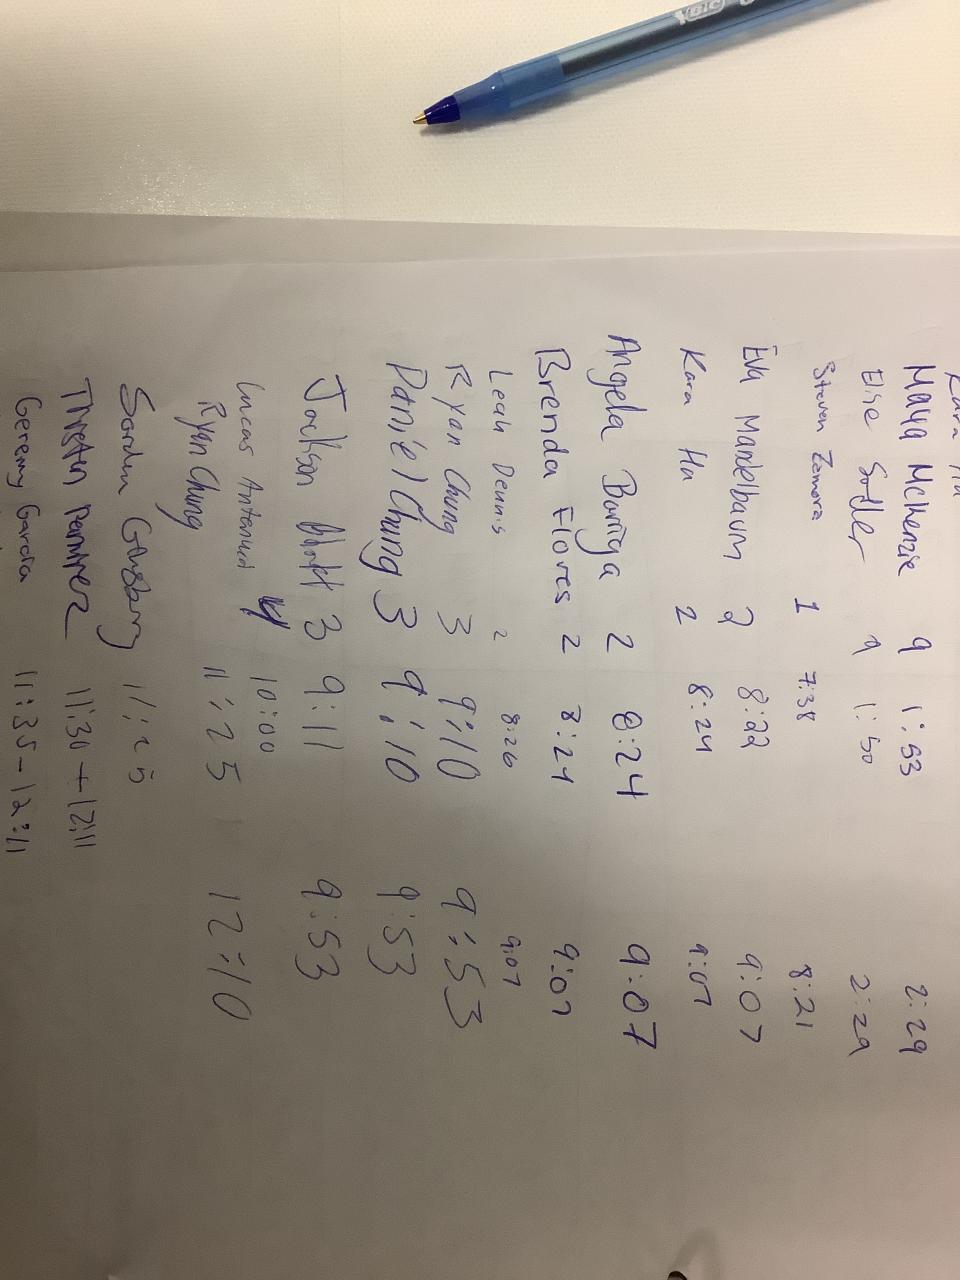 Kara Ha
Maya McKenzie 9 1:53 2:29
Elise Sadler 9 1:50 2:29
Steven Zamora 1 7:38 8:21
Eva Mandelbaum 2 8:22 9:07
Kara Ha 2 8:24 9:07
Angela Barriga 2 8:24 9:07
Brenda Flores 2 8:24 9:07
Leah Dennis 2 8:26 9:07
Ryan Chung 3 9:10 9:53
Daniel Chung 3 9:10 9:53
Jackson 3 9:11 9:53
Lucas 4 10:00
Ryan Chung 11:25 12:10
11:25
Ramirez 11:30 + 12:11
Geremy Garcia 11:35 - 12:11
BIC